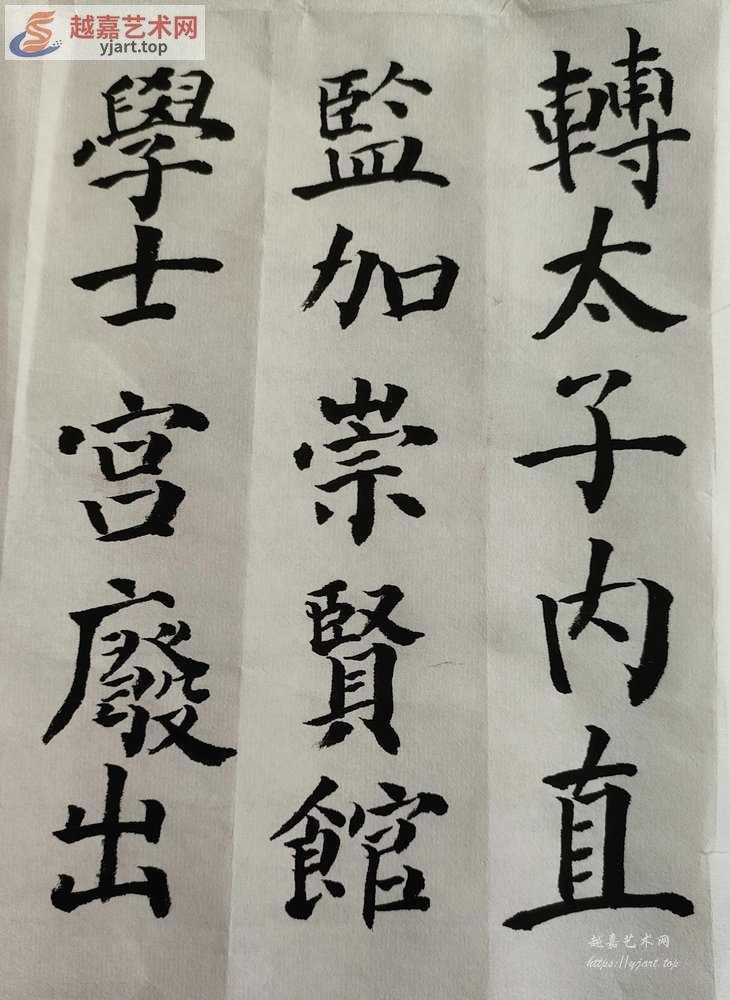 越嘉艺术网
yjart.top
轉太子内直
監加崇賢館
學士宮廢出
越嘉艺术网
https://yjart.top